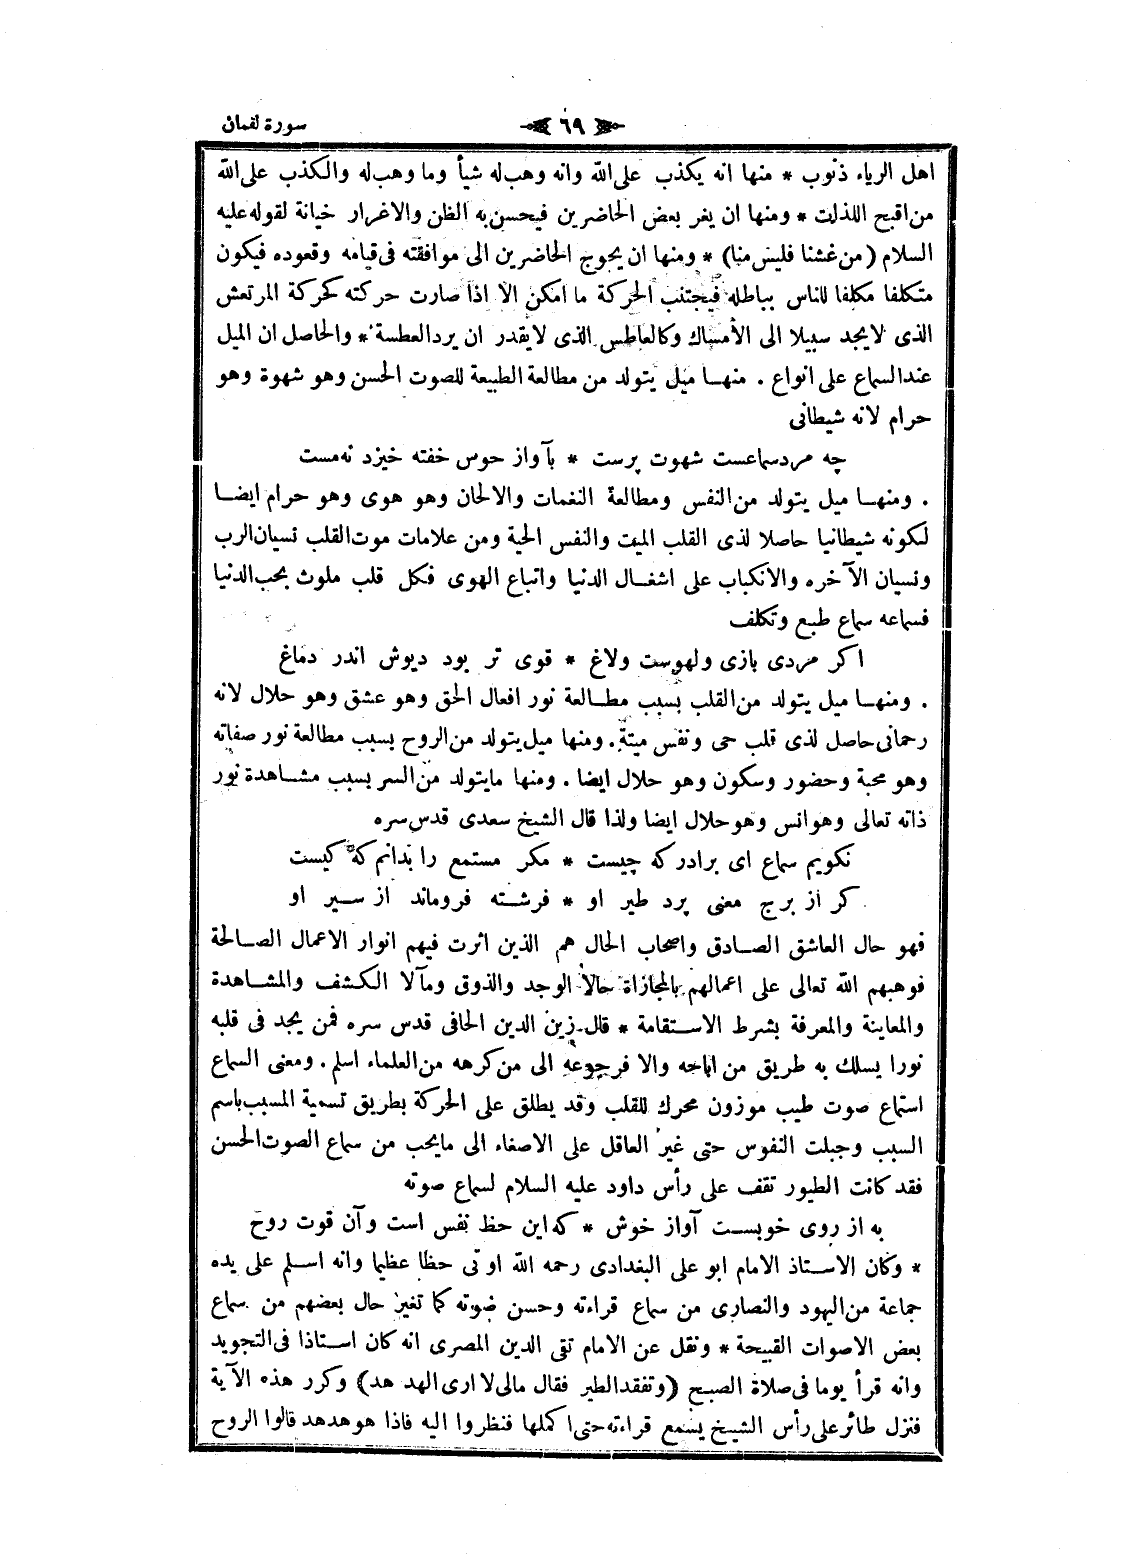 سورة لقمان
٦٩
اهل الرياء ذنوب * منها انه يكذب على الله وانه وهب له شيأ وما وهب له والكذب على الله
من اقبح اللذلت * ومنها ان يغر بعض الحاضرين فيحسن به الظن والاغرار خيانة لقوله عليه
السلام (من غشنا فليس منا) * ومنها ان يحوج الحاضرين الى موافقته فى قيامه وقعوده فيكون
متكلفا مكلفا للناس بباطله فيجتنب الحركة ما امكن الا اذا صارت حركته كحركة المرتعش
الذى لا يجد سبيلا الى الأمساك وكالعاطس الذى لا يقدر ان يرد العطسة * والحاصل ان الميل
عند السماع على انواع . منهـا ميل يتولد من مطالعة الطبيعة للصوت الحسن وهو شهوة وهو
حرام لانه شيطانى
چه مرد سماعست شهوت پرست * بآواز حوس خفته خيزد نه مست
. ومنهـا ميل يتولد من النفس ومطالعة النغمات والالحان وهو هوى وهو حرام ايضـا
لكونه شيطانيا حاصلا لذى القلب الميت والنفس الحية ومن علامات موت القلب نسيان الرب
ونسيان الآخره والانكباب على اشغـال الدنيا واتباع الهوى فكل قلب ملوث بحب الدنيا
فسماعه سماع طبع وتكلف
اكر مردى بازى ولهوست ولاغ * قوى تر بود ديوش اندر دماغ
. ومنهـا ميل يتولد من القلب بسبب مطـالعة نور افعال الحق وهو عشق وهو حلال لانه
رحمانى حاصل لذى قلب حى ونفس ميتة. ومنها ميل يتولد من الروح بسبب مطالعة نور صفاته
وهو محبة وحضور وسكون وهو حلال ايضا . ومنها مايتولد من السر بسبب مشـاهدة نور
ذاته تعالى وهو انس وهو حلال ايضا ولذا قال الشيخ سعدى قدس سره
نكويم سماع اى برادر كه چيست * مكر مستمع را بدانم كه كيست
كر از برج معنى پرد طير او * فرشـته فروماند از سـير او
فهو حال العاشق الصـادق واصحاب الحال هم الذين اثرت فيهم انوار الاعمال الصـالحة
فوهبهم الله تعالى على اعمالهم بالمجازاة حالا الوجد والذوق ومآلا الكشف والمشـاهدة
والمعاينة والمعرفة بشرط الاسـتقامة * قال زين الدين الحافى قدس سره فمن يجد فى قلبه
نورا يسلك به طريق من اباحه والا فرجوعه الى من كرهه من العلماء اسلم . ومعنى السماع
استماع صوت طيب موزون محرك للقلب وقد يطلق على الحركة بطريق تسمية المسبب باسم
السبب وجبلت النفوس حتى غير العاقل على الاصغاء الى مايحب من سماع الصوت الحسن
فقد كانت الطيور تقف على رأس داود عليه السلام لسماع صوته
به از روى خوبست آواز خوش * كه اين حظ نفس است وآن قوت روح
* وكان الاسـتاذ الامام ابو على البغدادى رحمه الله اوتى حظا عظيما وانه اسـلم على يده
جماعة من اليهود والنصارى من سماع قراءته وحسن صوته كما تغير حال بعضهم من سماع
بعض الاصوات القبيحة * ونقل عن الامام تقى الدين المصرى انه كان اسـتاذا فى التجويد
وانه قرأ يوما فى صلاة الصبح (وتفقد الطير فقال مالى لا ارى الهد هد) وكرر هذه الآية
فنزل طائر على رأس الشيخ يسمع قراءته حتى اكملها فنظروا اليه فاذا هو هدهد قالوا الروح